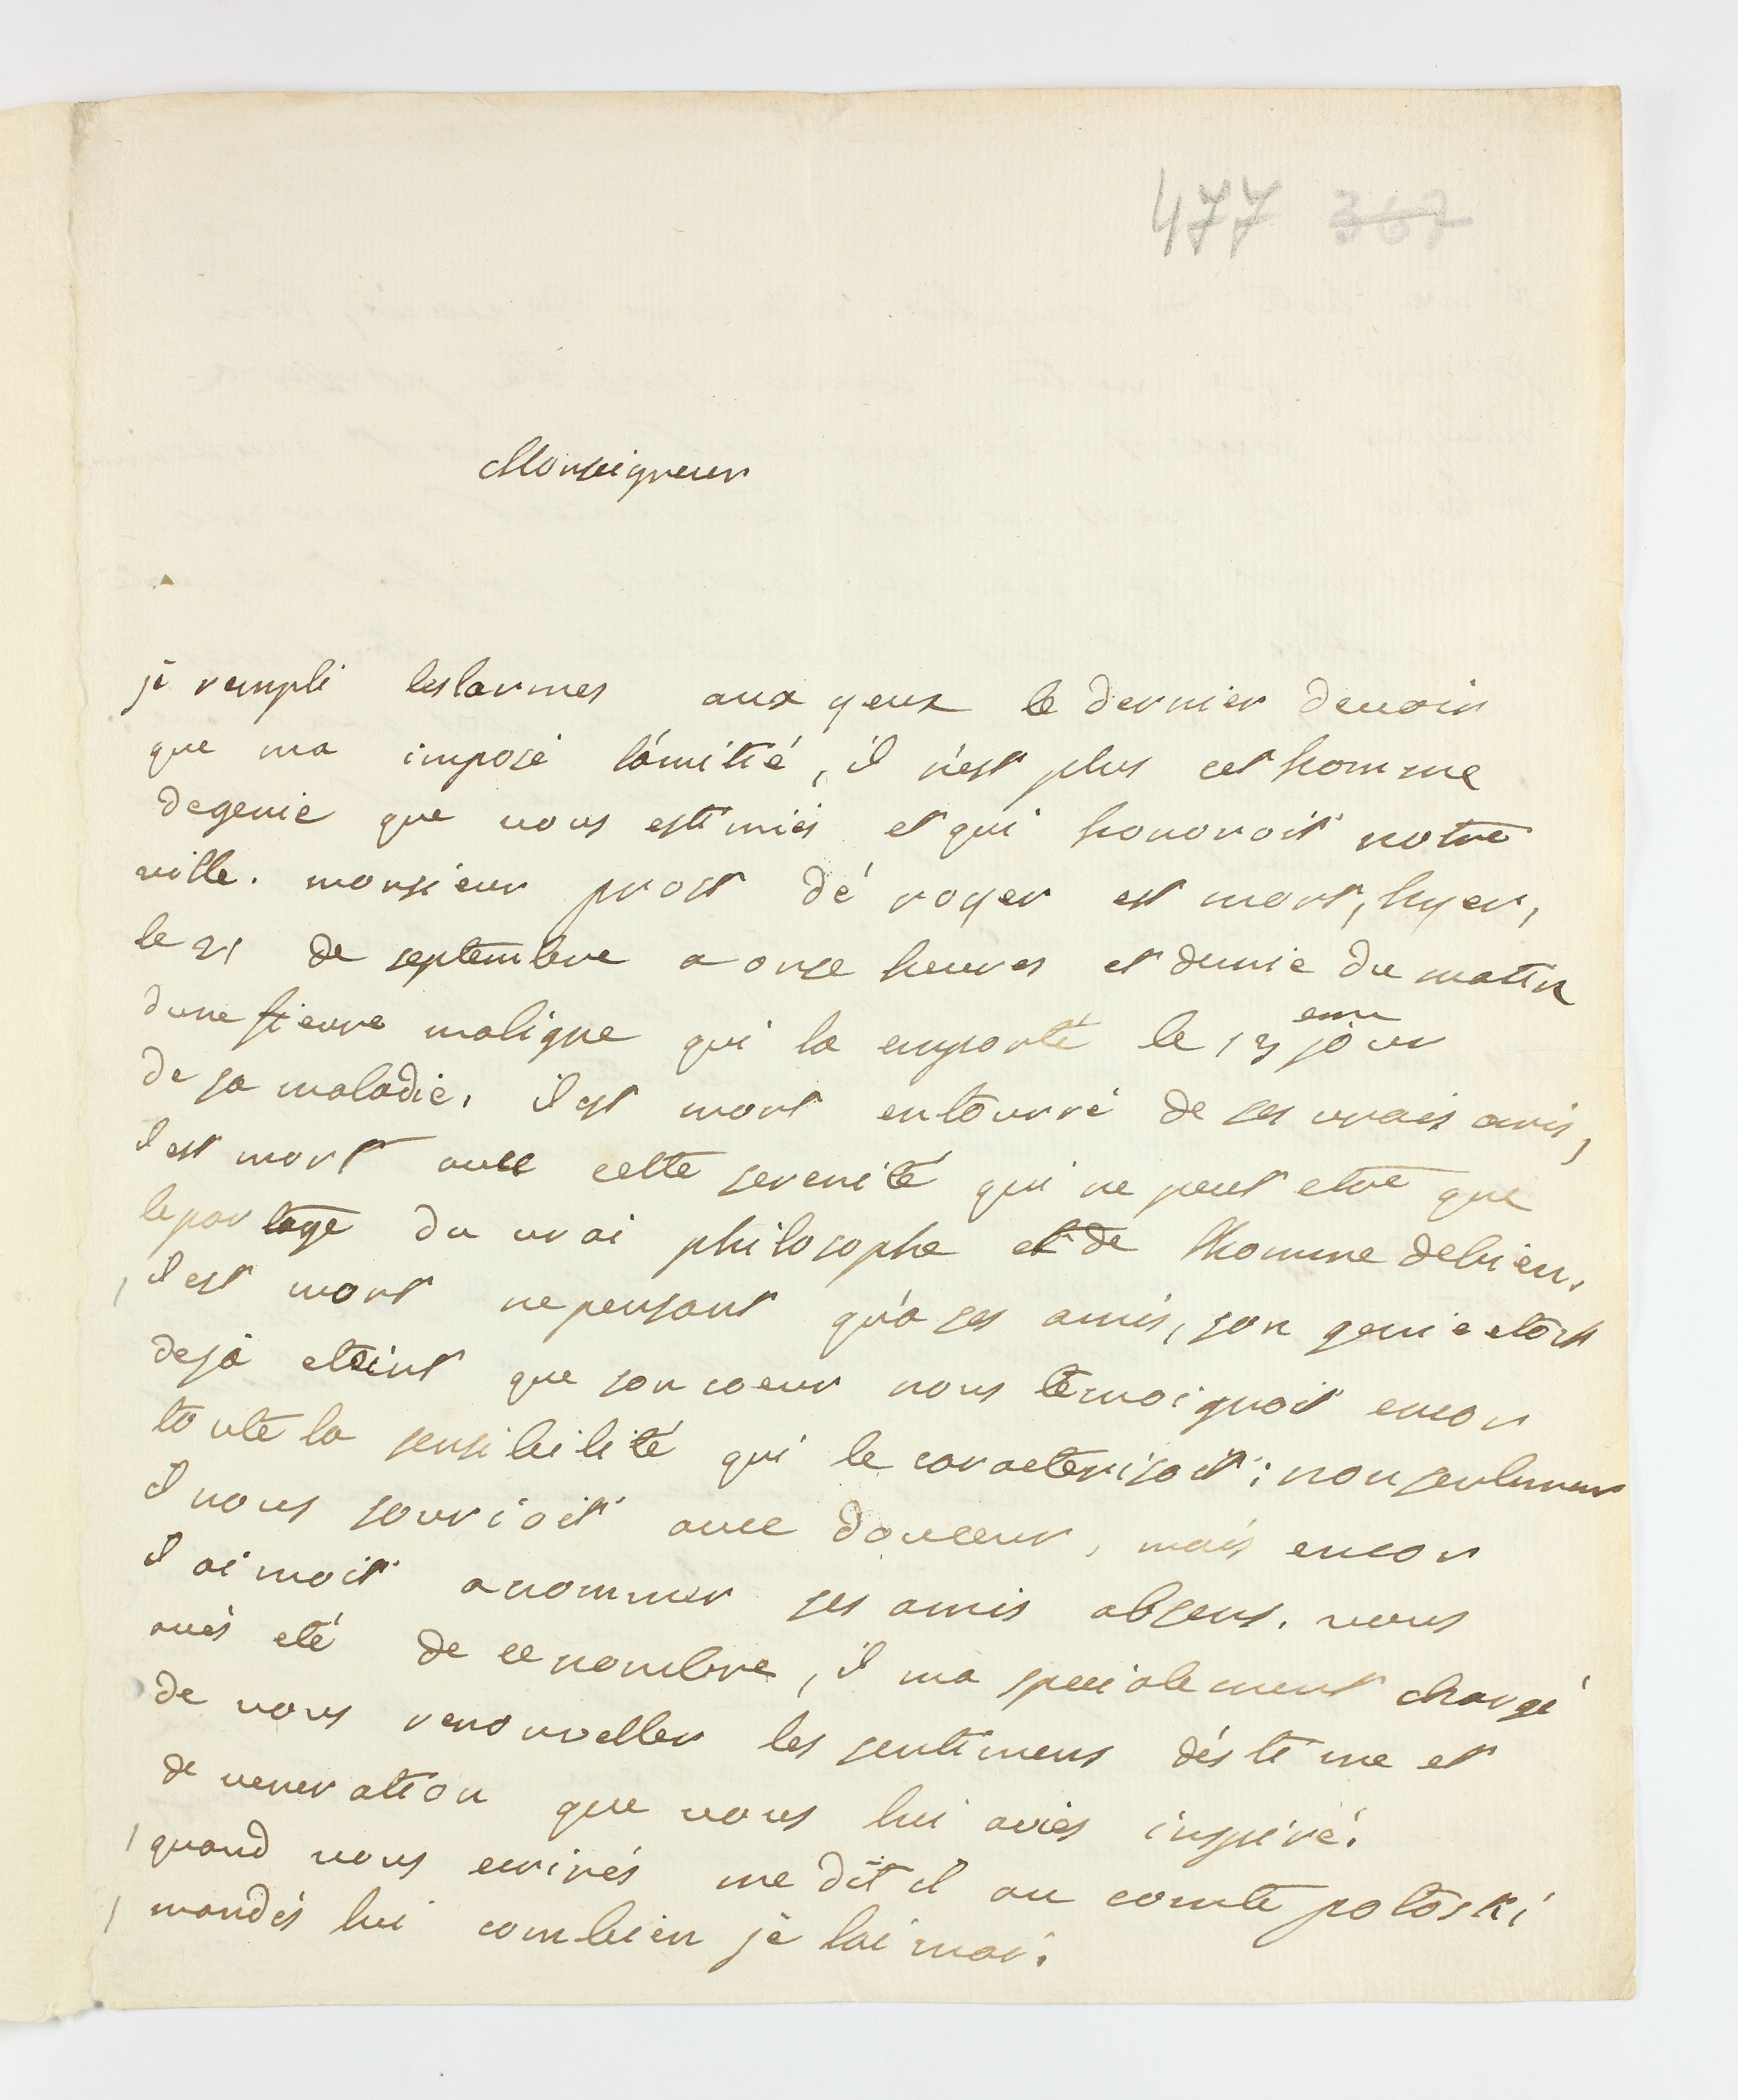 477 367
Monseigneur
je rempli les larmes aux yeux le dernier devoir
que ma imposé l'ámitié, il n'est plus cet homme
de genie que vous estimiés et qui honoroit notre
ville. monsieur prost dé royer est mort, hyer,
le 21 de septembre a onze heures et demie du matin
dune fievre maligne qui la emporté le 13eme jour
de sa maladie. il est mort entourré de ses vrais amis,
il est mort avec cette serenité qui ne peut etre que
le partage du vrai philosophe et de lhomme de bien.
il est mort ne pensant qu'a ses amis, son genie etoit
dejà eteint que son coeur nous temoignoit encor
toute la sensibilité qui le caracterisoit; non seulement
il nous sourioit avec douceur, mais encor
il aimoit a nommer ses amis absens. vous
avés eté de ce nombre, il ma specialement chargé
de vous renouveller les sentimens déstime et
de veneration que vous lui aviés inspiré.
quand vous ecrirés me dit il au comte potoski
mandés lui combien je laimai.